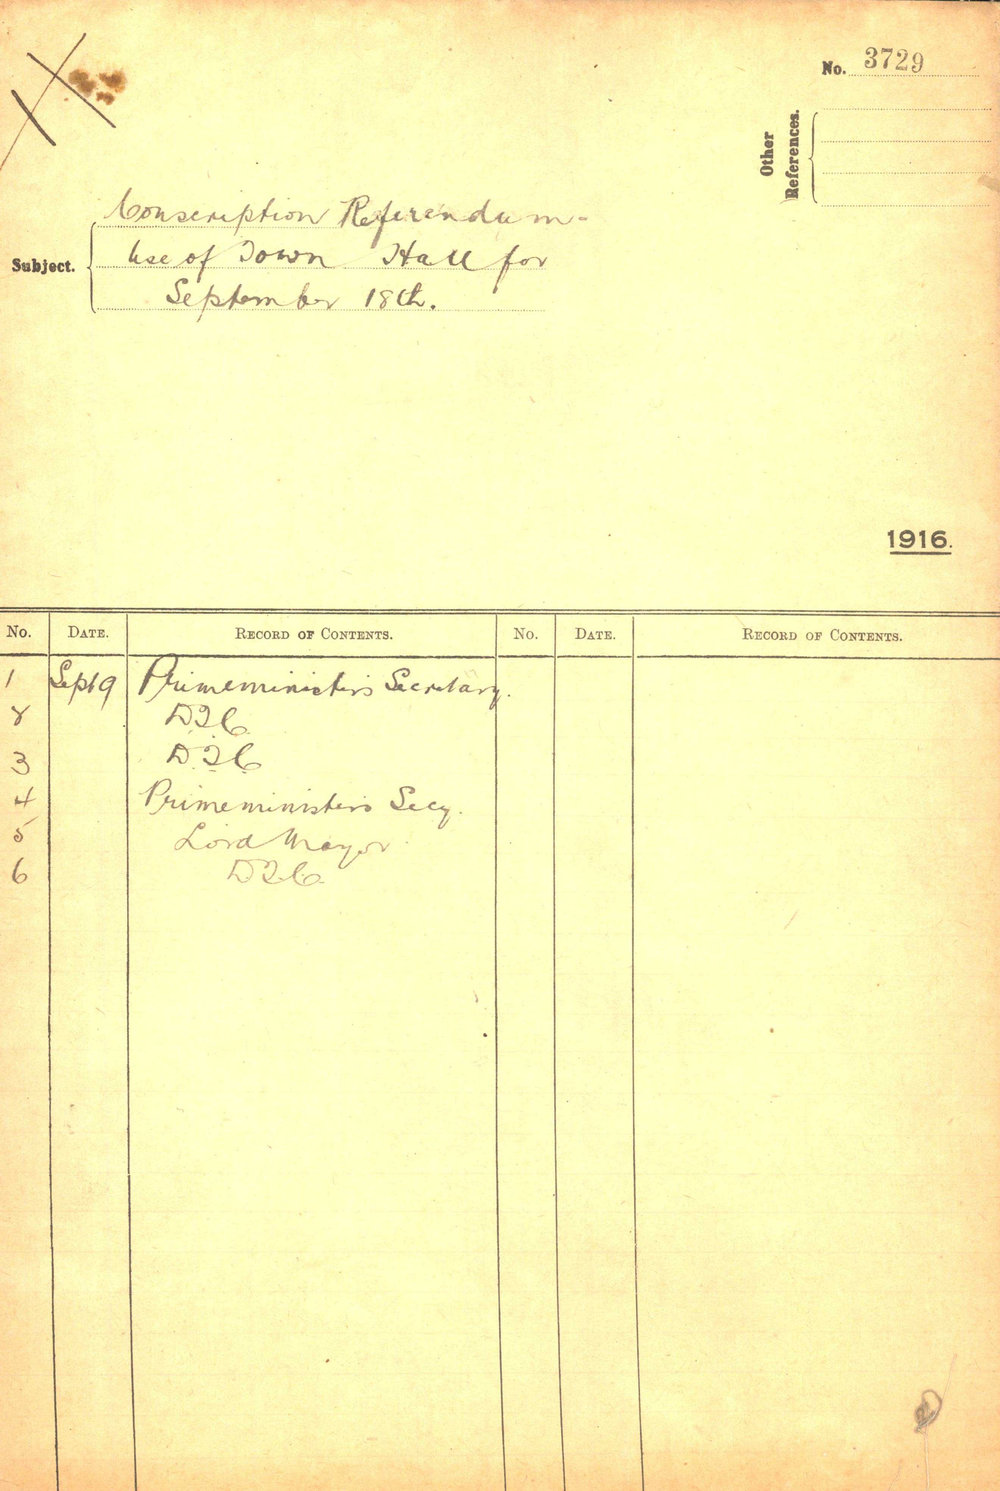 No. 3729
Other
References.
Conscription Referendum -
Subject.
Use of Town Hall for
September 18th.
1916.
No. DATE. RECORD OF CONTENTS. No. DATE. RECORD OF CONTENTS.
1 Sept 9 Primeminister's Secretary.
2
3
4 Primeminister's Secy.
5 Lord Mayor
6